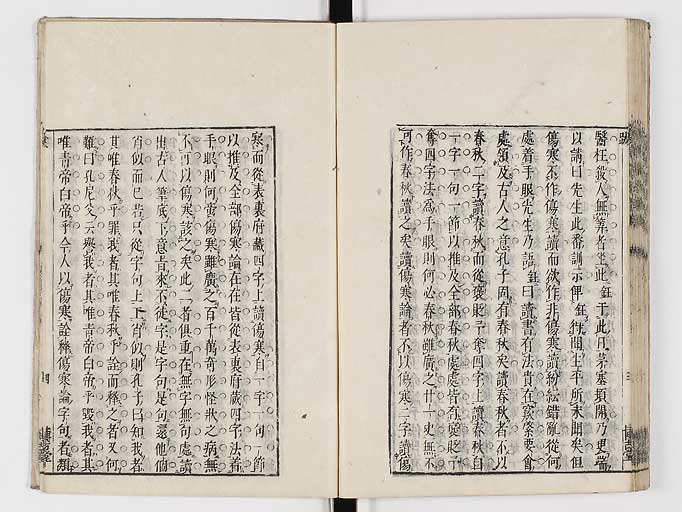 醫枉殺人無筭者坐此鈺于此日茅塞頓開乃更端
以請曰先生此番訓示俾鈺得聞生平所未聞矣但
傷寒不作傷寒讀而欲作非傷寒讀紛紜錯亂從何
處着手眼先生乃語鈺曰讀書有法貴在綮肯要會
處領及古人之意孔子固有春秋矣讀春秋者不以
春秋二字讀春秋而從褒貶予奪四字上讀春秋自
一字一句一節以推及全部春秋處處皆有褒貶予
奪四字法為手眼則何必春秋雖廣之廿一史無不
可作春秋讀之矣讀傷寒論者不以傷寒二字讀傷
寒而從表裏府藏四字上讀傷寒自一字一句一節
以推及全部傷寒論在在皆從表裏府藏四字法着
手眼則何啻傷寒雖廣之百千萬奇形怪狀之病無
不可以傷寒該之矣此二者俱重在無字無句處讀
出古人筆底下意者來不徒字是字句是句還他個
省似而已若只從字句上下省似則孔子曰知我者
其唯春秋乎罪我者其唯春秋乎詮而釋之者又何
難曰孔尼父云與我者其唯青帝白帝乎毀我者其
唯青帝白帝乎今人以傷寒詮釋傷寒論字句者類